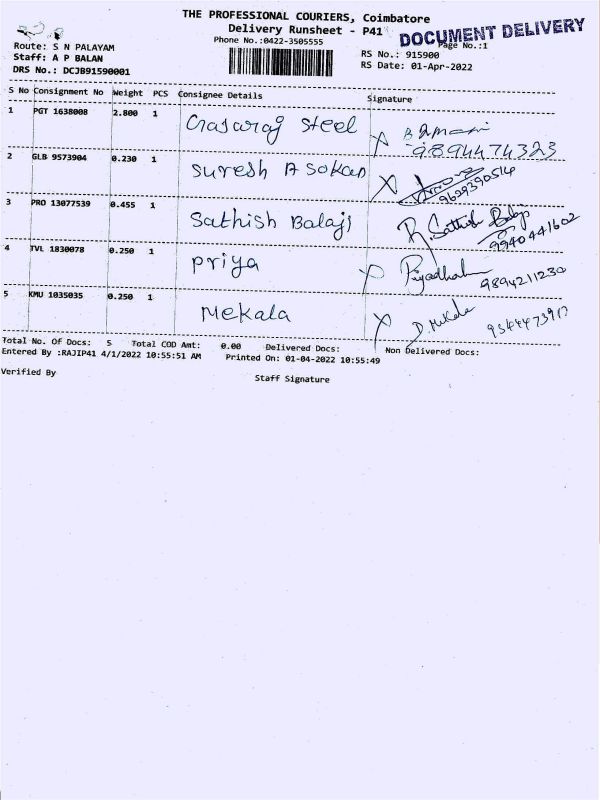 THE PROFESSIONAL COURIERS, Coimbatore
Delivery Runsheet - P41
DOCUMENT DELIVERY
Phone No.:0422-3505555
Page No.:1
Route: S N PALAYAM
RS No.: 915900
Staff: A P BALAN
RS Date: 01-Apr-2022
DRS No.: DCJB91590001
S No Consignment No Weight PCS Consignee Details Signature
1 PGT 1638008 2.800 1 Gajaraj Steel
9894474323
2 GLB 9573904 0.230 1 Suresh Asokan
9629390514
3 PRO 13077539 0.455 1 Sathish Balaji R. Sathish Balaji
9940441602
4 TVL 1830078 0.250 1 Priya
9894211230
5 KMU 1035035 0.250 1 Mekala D. Mekala
Total No. Of Docs: 5 Total COD Amt: 0.00 Delivered Docs: Non Delivered Docs:
Entered By :RAJIP41 4/1/2022 10:55:51 AM Printed On: 01-04-2022 10:55:49
Verified By
Staff Signature